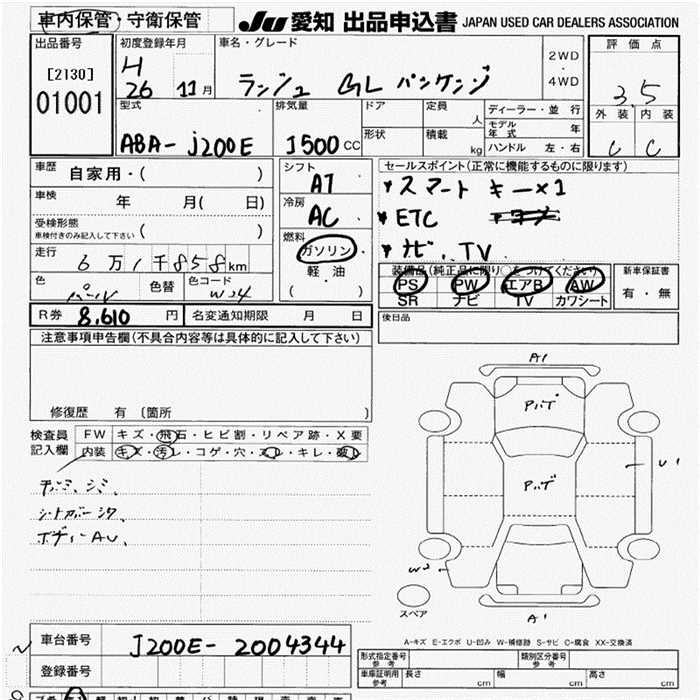 車内保管・守衛保管
JU 愛知 出品申込書 JAPAN USED CAR DEALERS ASSOCIATION
出品番号
[2130]
01001
初度登録年月
H
26 11月
車名・グレード
ランシュ GL パンケンジ
2WD
・
4WD
評価点
3.5
外装 内装
C C
型式
ABA-J200E
排気量
1500cc
ドア
形状
定員
人
積載
kg
ディーラー・並行
モデル年式 年
ハンドル 左・右
車歴
自家用・( )
車検
年 月( 日)
受検形態
車検付きのみ記入して下さい ( )
走行
6万1千858km
色
パール
色替
色コード
W24
シフト
AT
冷房
AC
燃料
ガソリン
・
軽油
( )
セールスポイント(正常に機能するものに限ります)
・スマートキー×1
・ETC
・ナビ、TV
装備品(純正品に限り○をつけてください)
PS PW エアB AW
SR ナビ TV カワシート
新車保証書
有・無
R券 8,610 円
名変通知期限 月 日
後日品
注意事項申告欄(不具合内容等は具体的に記入して下さい)
修復歴 有 〔箇所 〕
検査員
記入欄
FW キズ・飛石・ヒビ割・リペア跡・X要
内装 キズ・汚レ・コゲ・穴・スレ・キレ・破レ
シミ、
ボディーAU、
A1
U1
W2
A1
スペア
A-キズ E-エクボ U-凹み W-補修跡 S-サビ C-腐食 XX-交換済
車台番号 J200E-2004344
登録番号
形式指定番号
参考
類別区分番号
参考
車庫証明用
参考
長さ cm
幅 cm
高さ cm